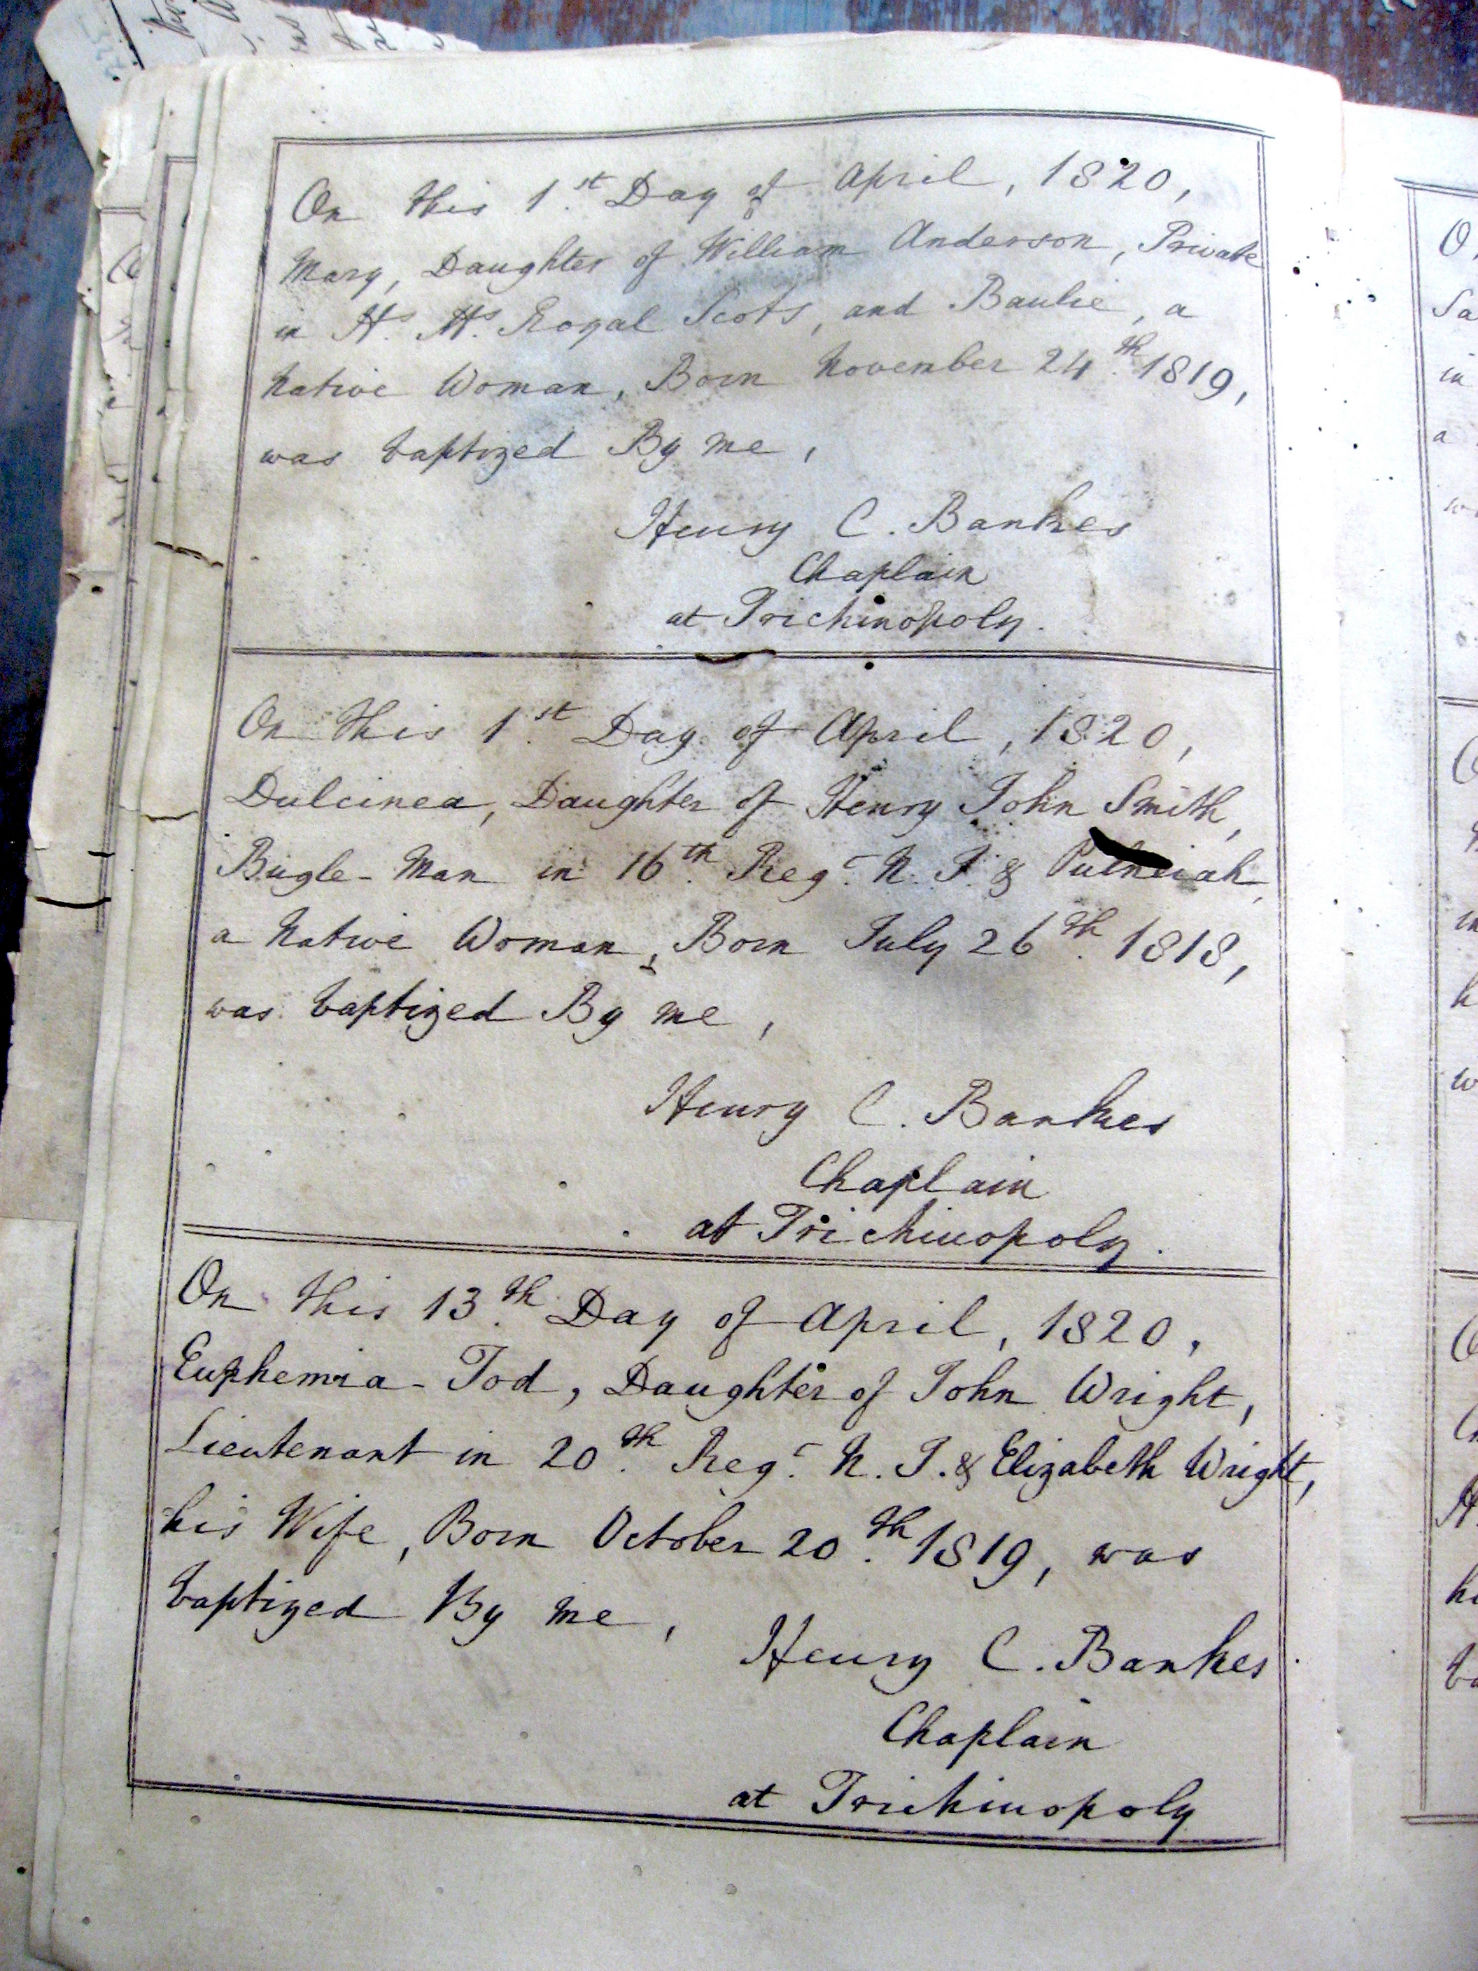 On this 1st Day of April, 1820,
Mary, Daughter of William Anderson, Private
in H.s M.s Royal Scots, and Baulie, a
Native Woman, Born November 24th. 1819,
was baptized By me,
Henry C. Bankes
Chaplain
at Trichinopoly.
On this 1st Day of April, 1820,
Dulcinea, Daughter of Henry John Smith,
Bugle-Man in 16th. Regt. N. I. &
a Native Woman, Born July 26th. 1818,
was baptized By me,
Henry C. Bankes
Chaplain
at Trichinopoly.
On this 13th. Day of April, 1820,
Euphemia-Tod, Daughter of John Wright,
Lieutenant in 20th. Regt. N. I. & Elizabeth Wright,
his Wife, Born October 20th. 1819, was
baptized By me,
Henry C. Bankes
Chaplain
at Trichinopoly